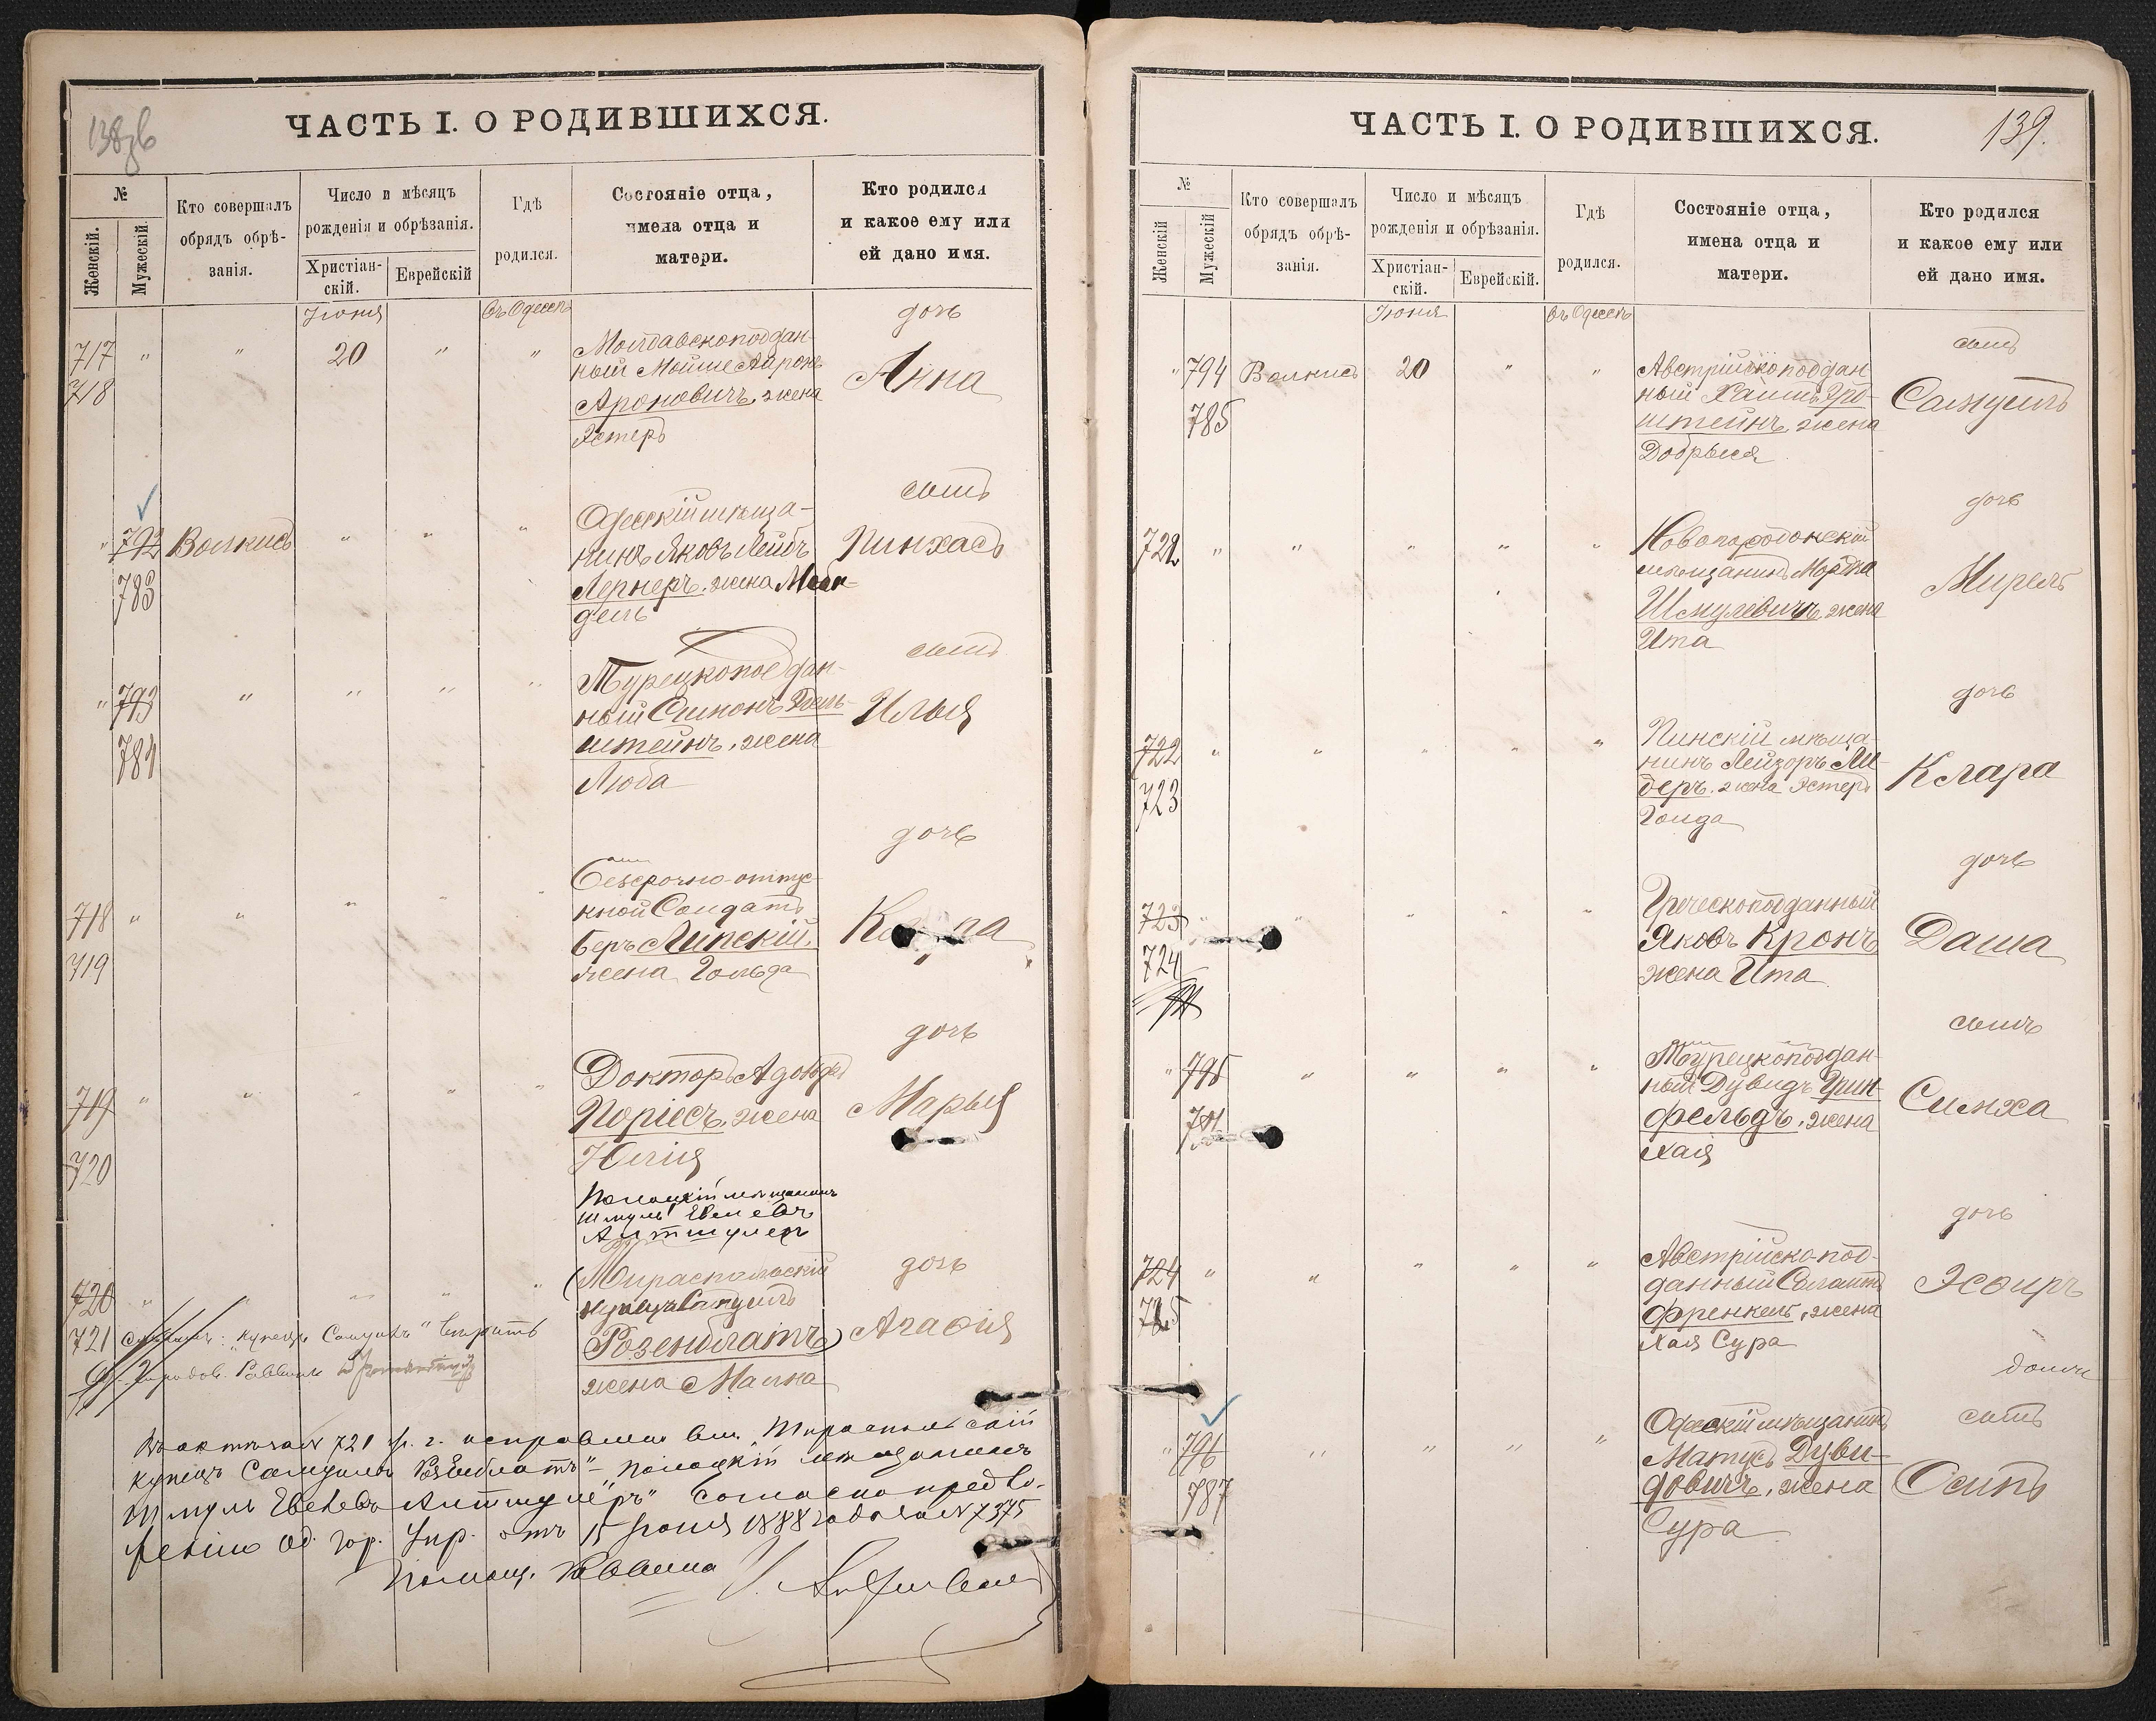 138 об
ЧАСТЬ I. О РОДИВШИХСЯ.
№
Женскій.
Мужескій.
Кто совершалъ обрядъ обрѣ-
занія.
Число и мѣсяцъ
рожденія и обрѣзанія.
Христіан-
скій.
Еврейскій
Гдѣ
родился.
Состояніе отца,
имена отца и
матери.
Кто родился
и какое ему или
ей дано имя.
Іюня
въ Одессѣ
717 " " 20 " "
718
Молдавскоподдан-
ный Мойше Ааронъ
Ароновичъ, жена
Эстеръ
дочь
Анна
" 792 Волкисъ " " "
783
Одесскій мѣща-
нинъ Яковъ Лейбъ
Лернеръ, жена Мен-
дель
сынъ
Пинхасъ
" 793 " " " "
784
Турецкоподдан-
ный Симонъ
штейнъ, жена
Люба
сынъ
Илья
718 " " " " "
719
Безсрочно-отпус-
кной Солдатъ
Беръ Липскій,
жена Гольда
дочь
719 " " " " "
720
Докторъ Адольфъ
Поріесъ, жена
Юлія
дочь
Марья
Полоцкій мѣщанинъ
Шмуль
Альтшулеръ
720 " " " " "
721
(Тираспольскій
купецъ Самуилъ
Розенблатъ)
жена Малка
дочь
Агафія
купецъ Самуилъ"
Городов. Раввинъ
Въ актѣ за № 721 с. г. исправлено вм. Тираспольскій
купецъ Самуилъ Розенблатъ" – "Полоцкій мѣщанинъ
Шмуль Альтшулеръ" согласно предло-
женію Од. Гор. Упр. отъ 15 Іюня 1888 года за № 7375
Помощ. Раввина
139.
ЧАСТЬ I. О РОДИВШИХСЯ.
№
Женскій
Мужескій
Кто совершалъ
обрядъ обрѣ-
занія.
Число и мѣсяцъ
рожденія и обрѣзанія.
Христіан-
скій.
Еврейскій.
Гдѣ
родился.
Состояніе отца,
имена отца и
матери.
Кто родился
и какое ему или
ей дано имя.
Іюня
въ Одессѣ
" 794 Волкисъ 20 " "
785
Австрійскоподдан
ный Хаимъ Гро-
штейнъ, жена
Добрыся
сынъ
Самуилъ
722 " " " " "
мѣщанинъ Мордка
Шмулевичъ, жена
Ита
дочь
Мирель
722 " " " " "
723
Пинскій мѣща-
нинъ Лейзоръ Ли-
деръ, жена Эстеръ
Голда
дочь
Клара
723 " " " " "
724
Греческоподданный
Яковъ Кронъ
жена Ита
дочь
Даша
" 795 " " " "
Турецкоподдан-
ный Дувидъ Грин-
фельдъ, жена
Хая
сынъ
Симха
724 " " " " "
725
Австрійско-под-
данный
Френкель, жена
Хая Сура
дочь
Эсфирь
" 796 " " " "
787
Одесскій мѣщанинъ
Матусъ Дуви-
довичъ, жена
Сура
сынъ
Осипъ